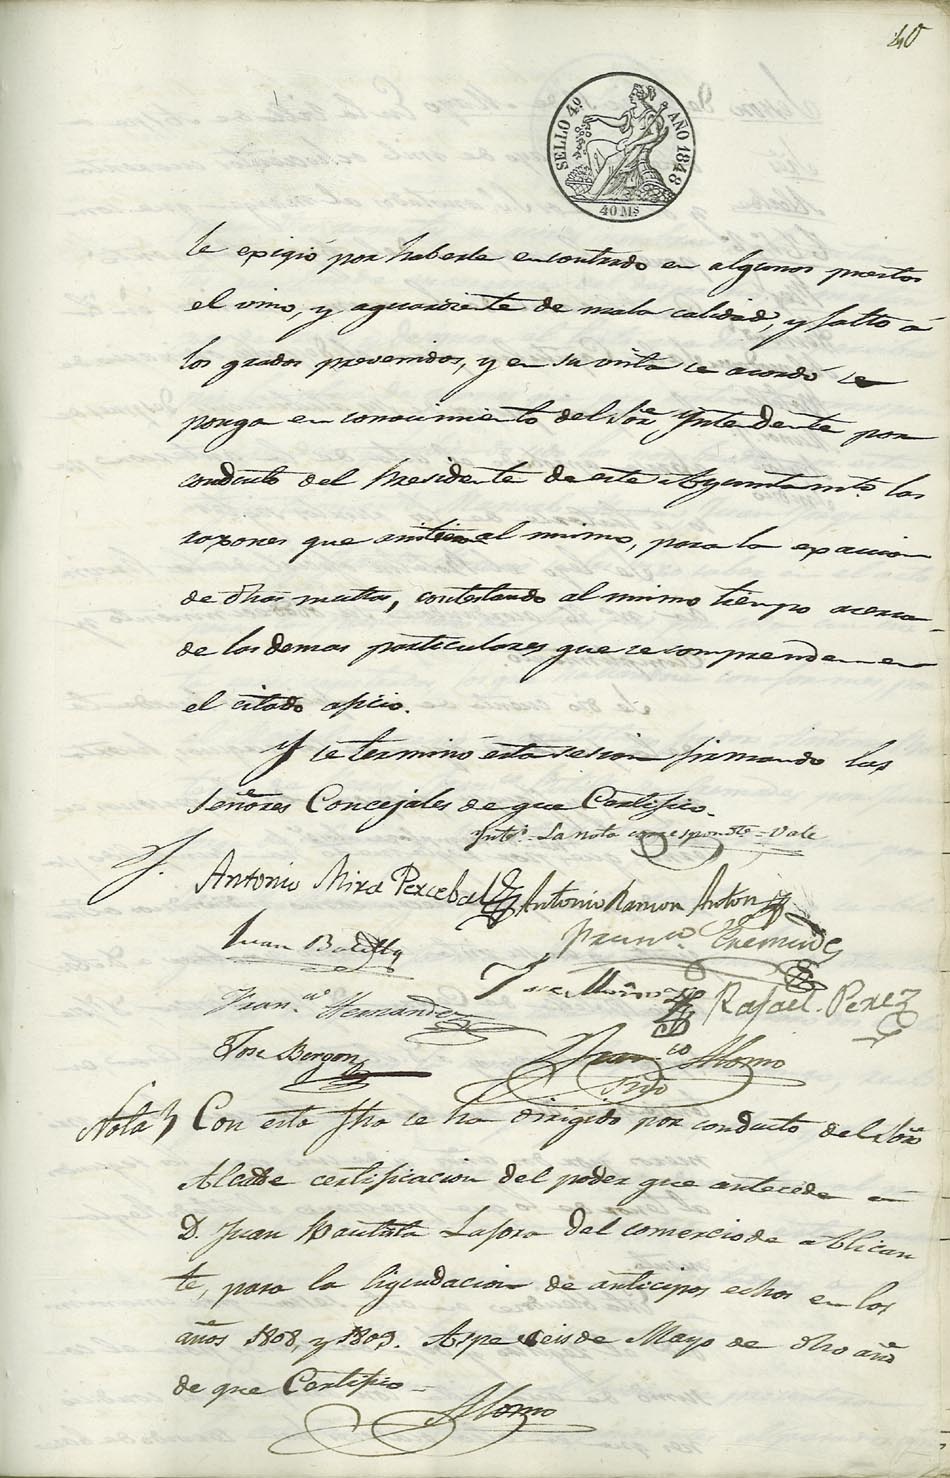 40
SELLO 4.º AÑO 1848
40 Ms
le exigió por haberle encontrado en algunos puestos
el vino, y aguardiente de mala calidad, y falto á
los grados prevenidos, y en su vista se acordó se
ponga en conocimiento del Sor. Yntendente por
conducto del Presidente de este Ayuntamto. las
razones que al mismo, para la exaccion
de dhas multas, contestando al mismo tiempo acerca
de los demas particulares que se comprenden en
el citado oficio.
Y se terminó esta sesion firmando los
señores Concejales de que Certifico.
Entº. = La nota correspondte = Vale
Antonio Mira Percebal Antonio Ramon Anton
Juan Botella
Franco. Hernandez Rafael Perez
Jose Franco. Alonso
Srio
Nota Con esta fha se ha dirigido por conducto del Sor
Alcalde certificacion del poder que antecede a
D. Juan Bautista Lafora del comercio de Alican
te, para la liquidacion de anticipos echos en los
años 1808, y 1809. Aspe seis de Mayo de dho año
de que Certifico =
Alonso